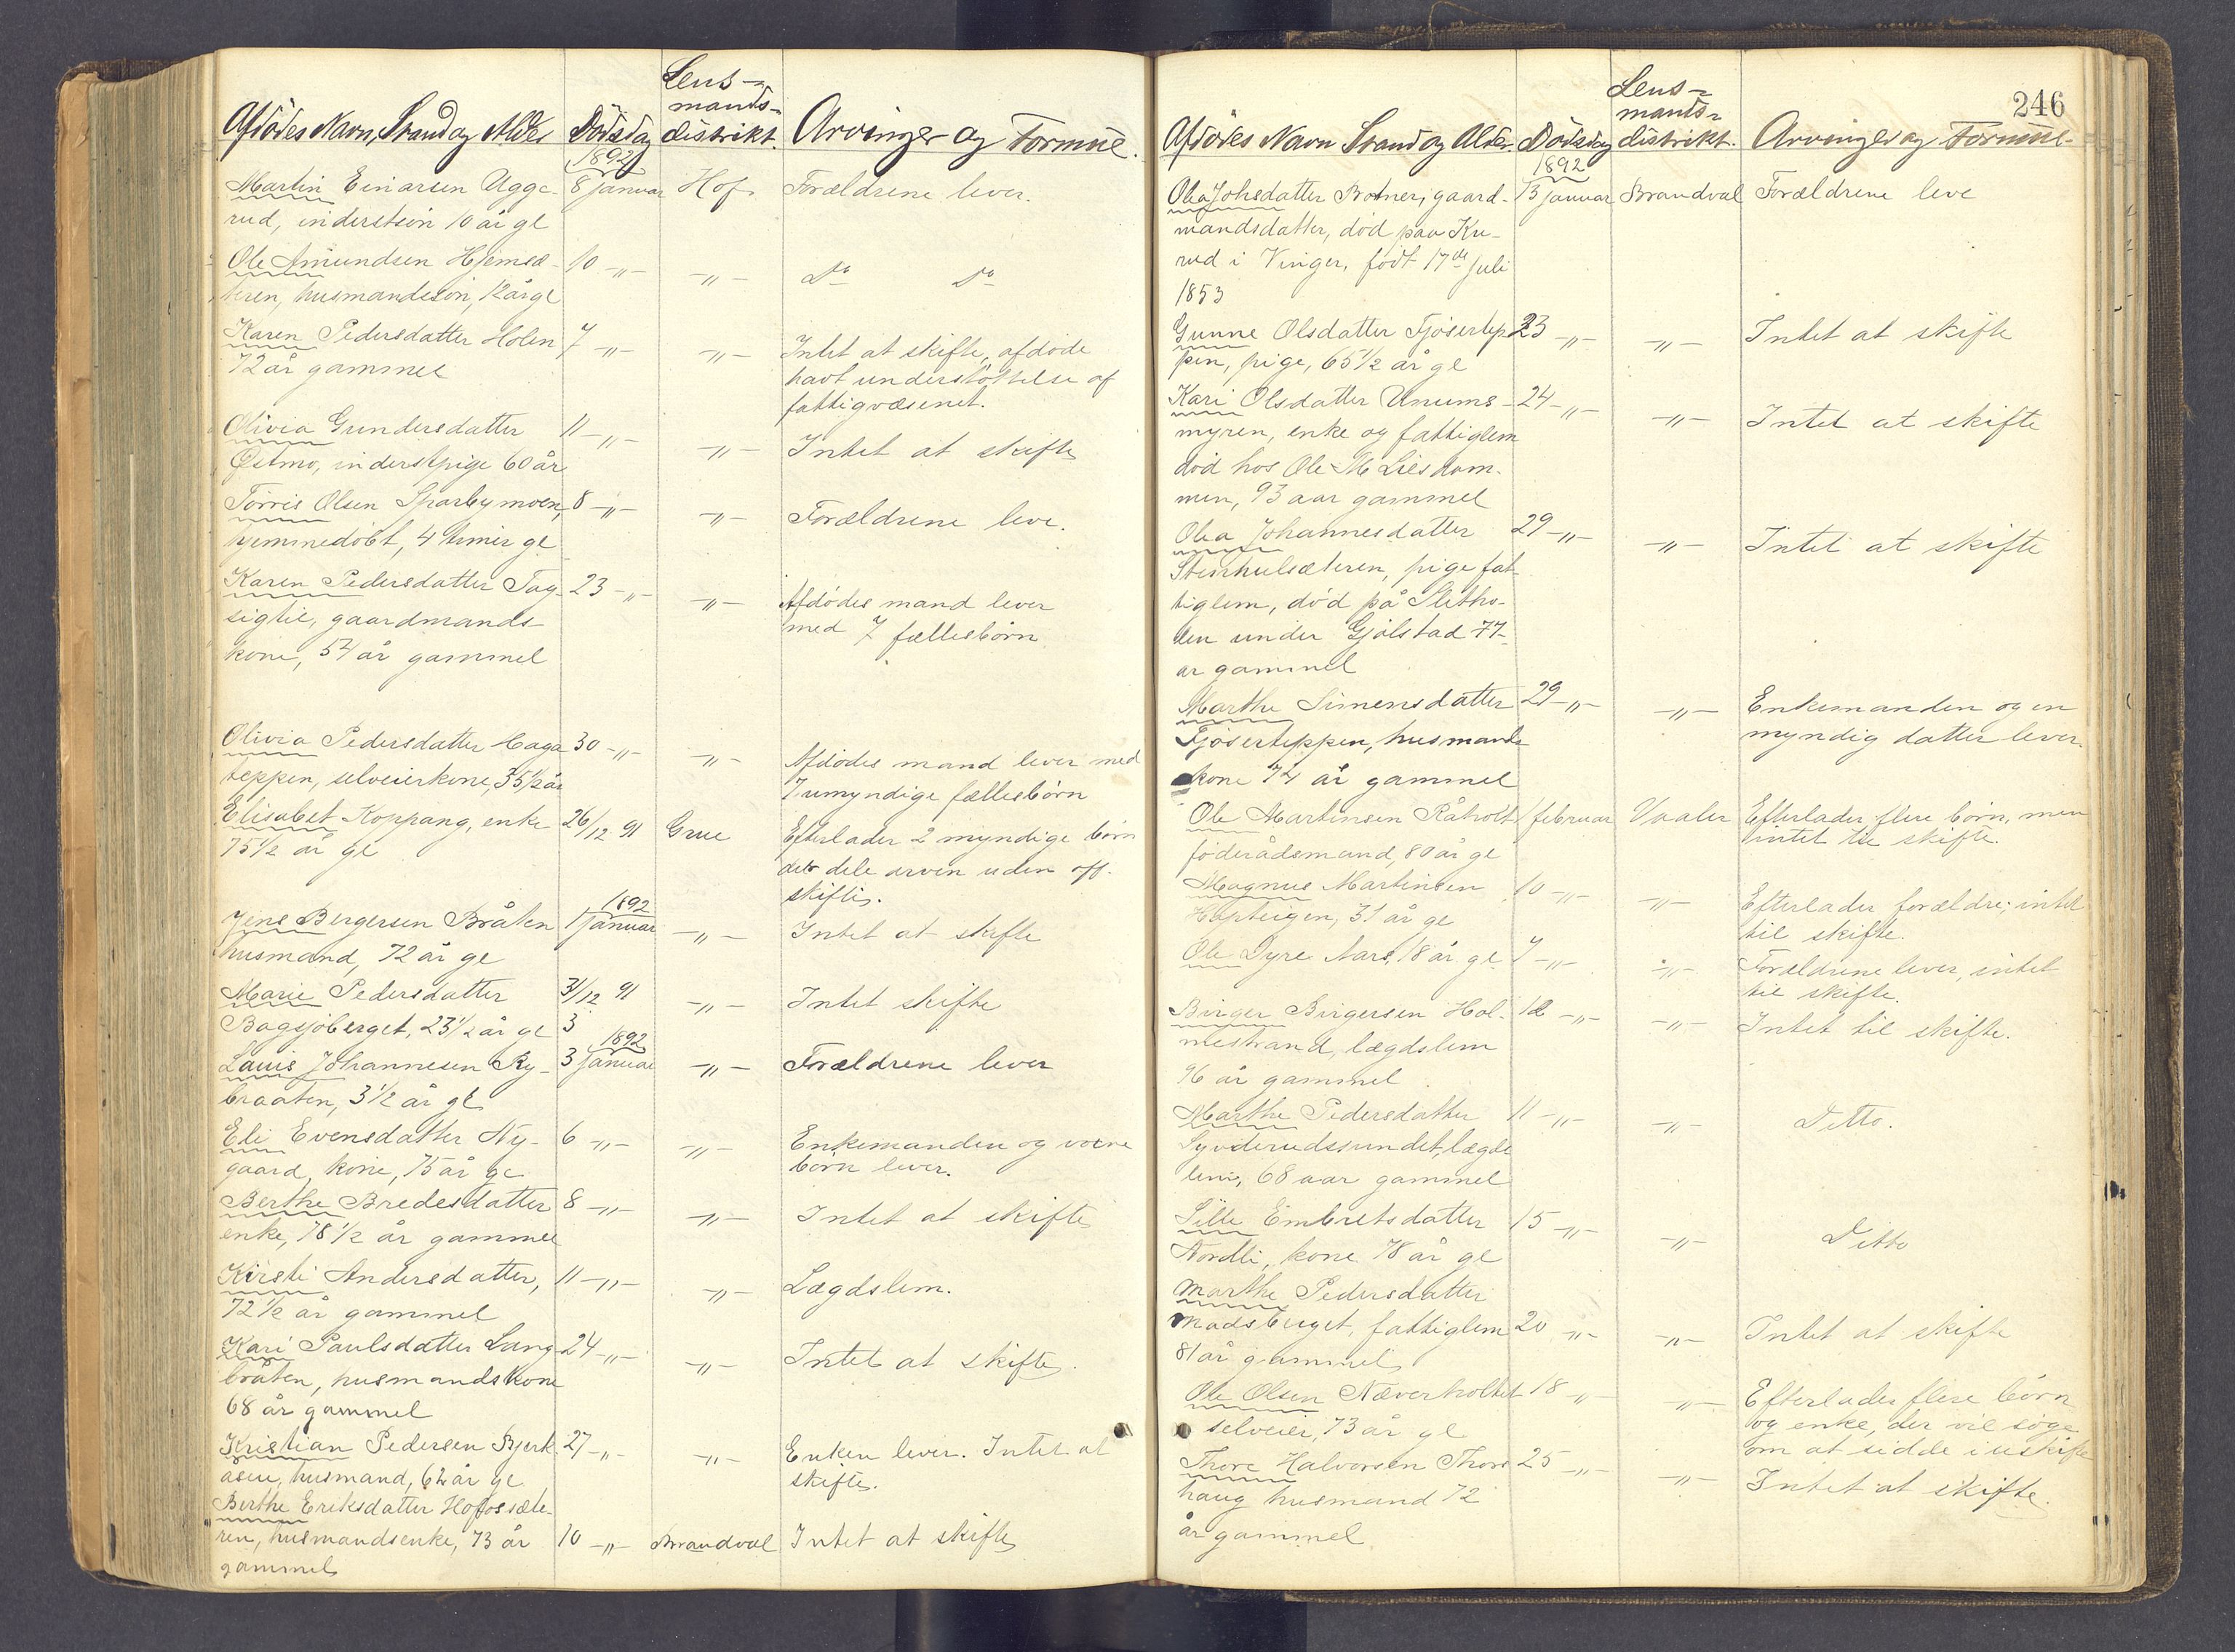 Lens-
mands-
Afdødes Navn, Stand og Alder Dødsdag distrikt. Arvinger og Formue.
1892
Martin Einarsen Ugge- 8 januar Hof Forældrene lever.
rud, inderstsøn 10 år gl
Ole Amundsen Hjemsæ- 10 -„- -„- Do Do
teren, husmandssøn, 12 år gl
Karen Pedersdatter Holen 7 -„- -„- Intet at skifte, afdøde
72 år gammel havt understøttelse af
fattigvæsenet.
Olivia Gundersdatter 11 -„- -„- Intet at skifte
Østmo, inderstpige 60 år
Torris Olsen Sparbymoen, 8 -„- -„- Forældrene leve.
hjemmedøbt, 4 timer gl
Karen Pedersdatter Tag- 23 -„- -„- Afdødes mand lever
sigtie, gaardmands- med 7 fællesbörn
kone, 54 år gammel
Olivia Pedersdatter Haga- 30 -„- -„- Afdødes mand lever med
teppen, selveierkone, 35 1/2 år 7 umyndige fællesbörn
Elisabet Koppang, enke 26/12 91 Grue Efterlader 2 myndige börn
75 1/2 år gl der dele arven uden off.
skifte.
1892
Jens Bergersen Bråten 1 januar -„- Intet at skifte
husmand, 72 år gl
Marie Pedersdatter 31/12 91 -„- Intet skifte
Bagsjöberget, 23 1/2 år gl 3
1892
Lauis Johannesen Ry- 3 januar -„- Forældrene lever
braaten, 3 1/2 år gl
Eli Evensdatter Ny- 6 -„- -„- Enkemanden og voxne
gaard, kone, 75 år gl börn lever.
Berthe Bredesdatter 8 -„- -„- Intet at skifte
enke, 78 1/2 år gammel
Kirsti Andersdatter, 11 -„- -„- Lægdslem.
72 1/2 år gammel
Kari Paulsdatter Lang- 24 -„- -„- Intet at skifte.
bråten, husmandskone
68 år gammel
Kristian Pedersen Bjerk- 27 -„- -„- Enken lever. Intet at
åsen, husmand, 62 år gl skifte.
Berthe Eriksdatter Hofossæte-
ren, husmandsenke, 73 år 10 -„- Brandval Intet at skifte
gammel
246
Lens-
mands-
Afdødes Navn Stand og Alder. Dødsdag distrikt. Arvinger og Formue.
1892
Olea Johsdatter Brotner, gaard- 13 januar Brandval Forældrene leve
mandsdatter, död paa Ku-
rud i Vinger, födt 17de Juli
1853
Gunne Olsdatter Fjösertep- 23 -„- -„- Intet at skifte
pen, pige, 65 1/2 år gl
Kari Olsdatter Unums- 24 -„- -„- Intet at skifte
myren, enke og fattiglem
död hos Ole M Lieskom-
men, 93 aar gammel
Olea Johannesdatter 29 -„- -„- Intet at skifte
Stenhulsæteren, pige fat-
tiglem, död på Slettho-
len under Gjölstad 77-
år gammel
Marthe Simensdatter 29 -„- -„- Enkemanden og en
Fjöserteppen, husmands- myndig datter lever.
kone 74 år gammel
Ole Martinsen Råholt 1 februar Vaaler Efterlader flere börn, men
föderådsmand, 80 år gl intet til skifte.
Magnus Martinsen 10 -„- -„- Efterlader forældre; intet
Hopteigen, 31 år gl til skifte.
Ole Dyre Aars, 18 år gl 7 -„- -„- Forældrene lever, intet
til skifte.
Birger Birgersen Hol- 12 -„- -„- Intet til skifte.
mestrand, lægdslem
96 år gammel
Marthe Pedersdatter 11 -„- -„- Ditto.
Syverudssundet, lægds
lem, 68 aar gammel
Sille Embretsdatter 15 -„- -„- Ditto
Nordli, kone 78 år gl
Marthe Pedersdatter
Madsberget, fattiglem 20 -„- -„- Intet at skifte
81 år gammel
Ole Olsen Næverholtet 18 -„- -„- Efterlader flere börn
selveier, 73 år gl og enke, der vil söge
om at sidde i uskifte
Thore Halvorsen Thors 25 -„- -„- Intet at skifte.
haug husmand 72
år gammel